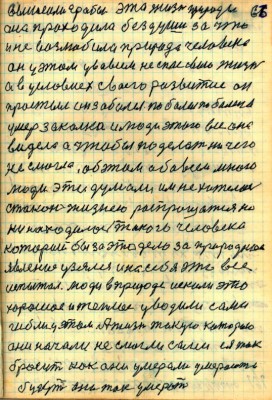 эта жизнь природы
она проходила без души за что
не возлюбила природа человека
он у этом уважаем не спас свою жизнь
а в условиях своего развития он
простыл он заболел поболел поболел и
умер закопали люди этого все она
видела а чтобы поделать ничего
не смогла, об этом обо всем много
люди эти думали, им не хотелось
с такою жизнею распрощаться но
не находилось такого человека
который бы за это дело за природное
явление взялся и на себе это все
испытал. люди в природе искали это
хорошее и теплое уводили сами
гибли у этом. А жизнь такую которую
они начали не смогли сами и так
бросить как они умерали умерают
будут они так умерать